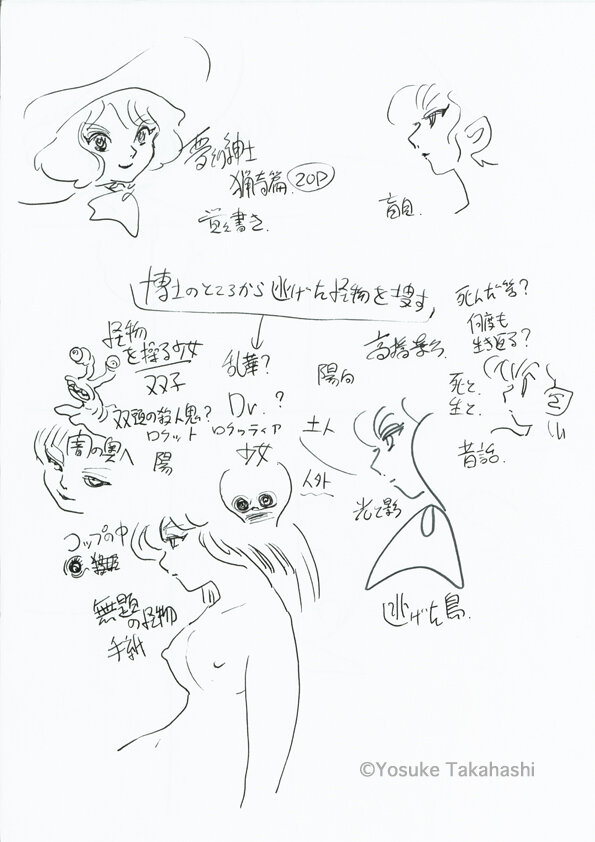 夢幻紳士
猟奇篇 20P
覚え書き.
盲目.
博士のところから逃げた怪物を捜す
死んだ筈?
何度も
生き返る?
死と、
生と、
昔話.
怪物
を操る少女
双子
双頭の殺人鬼?
ロケット
陽
闇の奥へ
乱華?
Dr.?
ロケッティア
少女
陽向
土人
人外
光と影
逃げた鳥.
コップの中
無題
の怪物
手紙
©Yosuke Takahashi